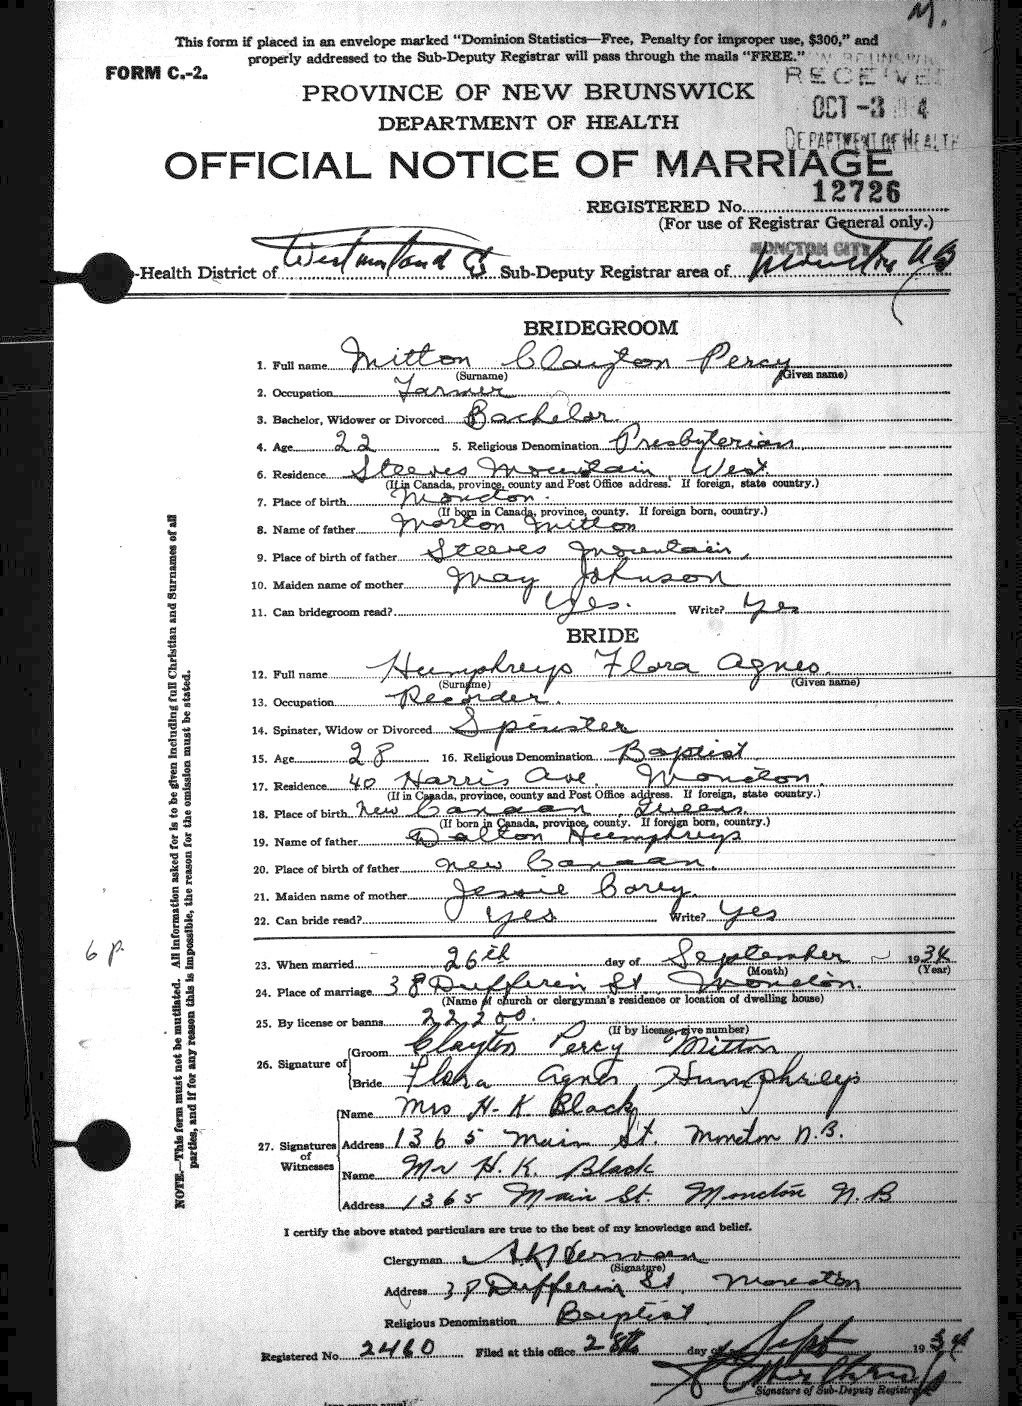 M.
This form if placed in an envelope marked "Dominion Statistics—Free, Penalty for improper use, $300," and
properly addressed to the Sub-Deputy Registrar will pass through the mails "FREE."
FORM C.-2.
PROVINCE OF NEW BRUNSWICK
DEPARTMENT OF HEALTH
OCT -3
DEPARTMENT OF HEALTH
OFFICIAL NOTICE OF MARRIAGE
REGISTERED No. 12726
(For use of Registrar General only.)
MONCTON CITY
Health District of Westmorland Sub-Deputy Registrar area of Moncton NB
BRIDEGROOM
1. Full name Mitton Clayton Percy
(Surname) (Given name)
2. Occupation Farmer
3. Bachelor, Widower or Divorced Bachelor.
4. Age 22 5. Religious Denomination Presbyterian
6. Residence Steeves Mountain West
(If in Canada, province, county and Post Office address. If foreign, state country.)
7. Place of birth Moncton.
(If born in Canada, province, county. If foreign born, country.)
8. Name of father Morton Mitton
9. Place of birth of father Steeves Mountain,
10. Maiden name of mother May Johnson
11. Can bridegroom read? Yes. Write? Yes
BRIDE
12. Full name Humphreys Flora Agnes.
(Surname) (Given name)
13. Occupation Recorder.
14. Spinster, Widow or Divorced Spinster
15. Age 28 16. Religious Denomination Baptist
17. Residence 40 Harris Ave. Moncton.
(If in Canada, province, county and Post Office address. If foreign, state country.)
18. Place of birth New Canaan, Queens.
(If born in Canada, province, county. If foreign born, country.)
19. Name of father Dalton Humphreys
20. Place of birth of father New Canaan.
21. Maiden name of mother Jessie Corey.
22. Can bride read? Yes Write? Yes
23. When married 26th day of September 1934
(Month) (Year)
24. Place of marriage 38 Dufferin St. Moncton.
(Name of church or clergyman's residence or location of dwelling house)
25. By license or banns 22200.
(If by license, give number)
26. Signature of Groom Clayton Percy Mitton
Bride Flora Agnes Humphreys
27. Signatures of Witnesses
Name Mrs H. K. Black
Address 1365 Main St. Moncton N.B.
Name Mr H. K. Black
Address 1365 Main St. Moncton N.B
I certify the above stated particulars are true to the best of my knowledge and belief.
Clergyman
(Signature)
Address 38 Dufferin St. Moncton
Religious Denomination Baptist
Registered No. 2460 Filed at this office 28th day of Sept 1934
Signature of Sub-Deputy Registrar
NOTE.—This form must not be mutilated. All information asked for is to be given including full Christian and Surnames of all
parties, and if for any reason this is impossible, the reason for the omission must be stated.
6 p.